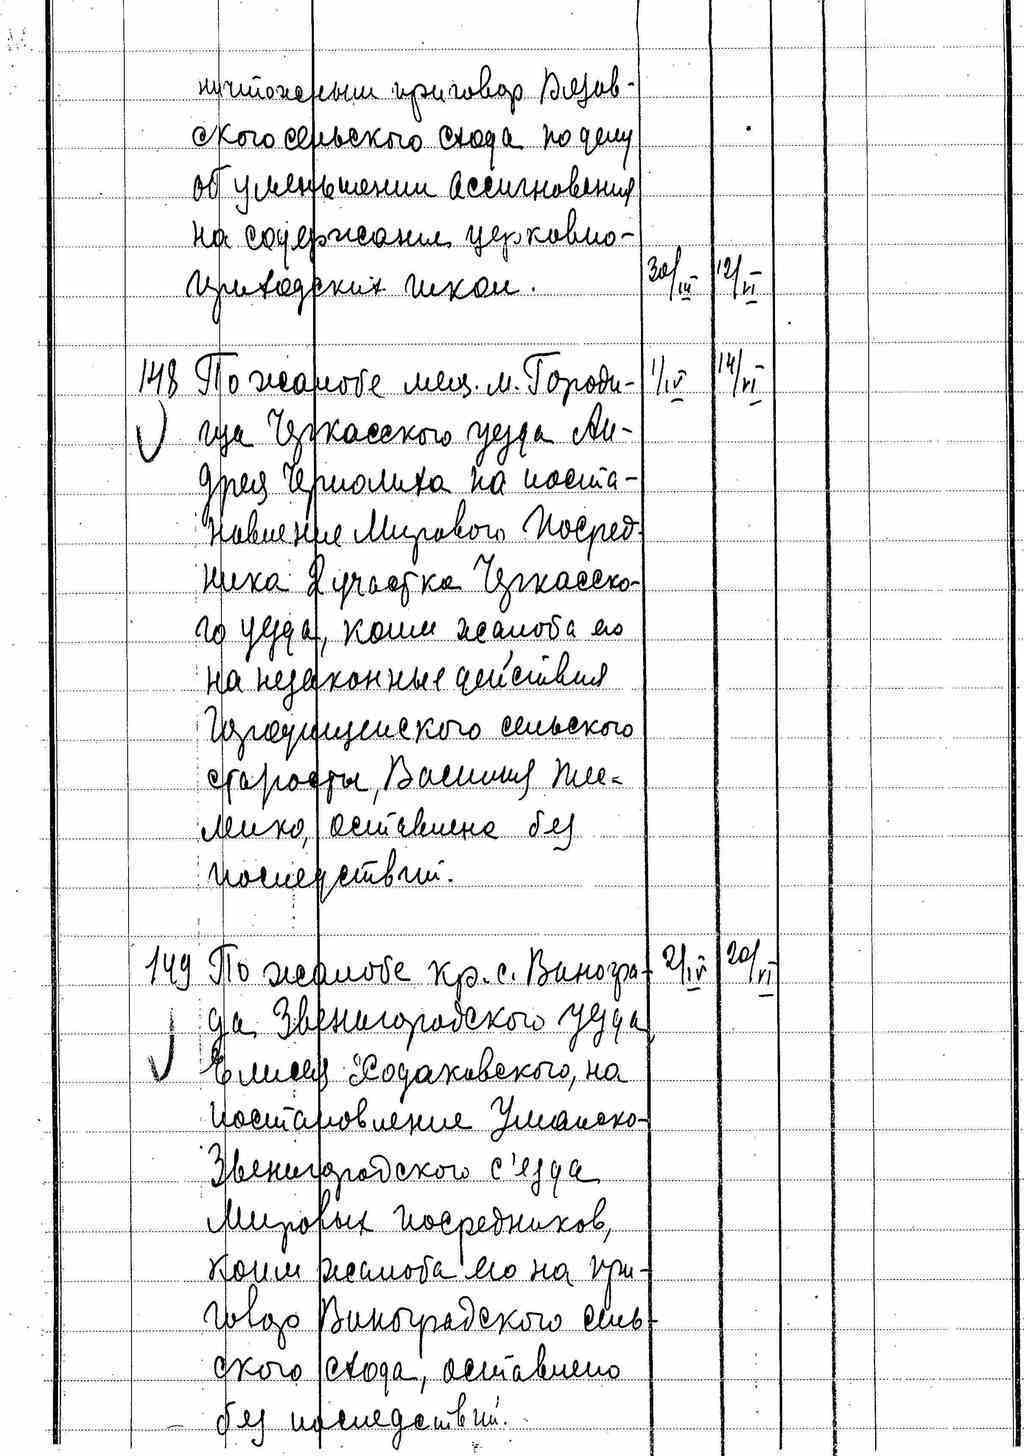 ничтоженыи приговор Вязов-
ского сельского схода по делу
об уменьшении ассигнования
на содержание церковно-
приходских школ. 30/III 12/VI
148 По жалобе мещ. м. Городи- 1/IV 14/VI
ща Черкасского уезда Ан-
дрея Черполиха на поста-
новление Мирового Посред-
ника 2 участка Черкасско-
го уезда, коим жалоба его
на незаконные действия
Городищенского сельского
старосты, Василия
оставлена без
последствий.
149 По жалобе кр. с. Виногра- 2/IV 20/VI
да Звенигородского уезда
Елисея Ходаковского, на
постановление Уманско-
Звенигородского с'езда
Мировых посредников,
коим жалоба его на при-
говор Виноградского сель-
ского схода, оставлено
без последствий.